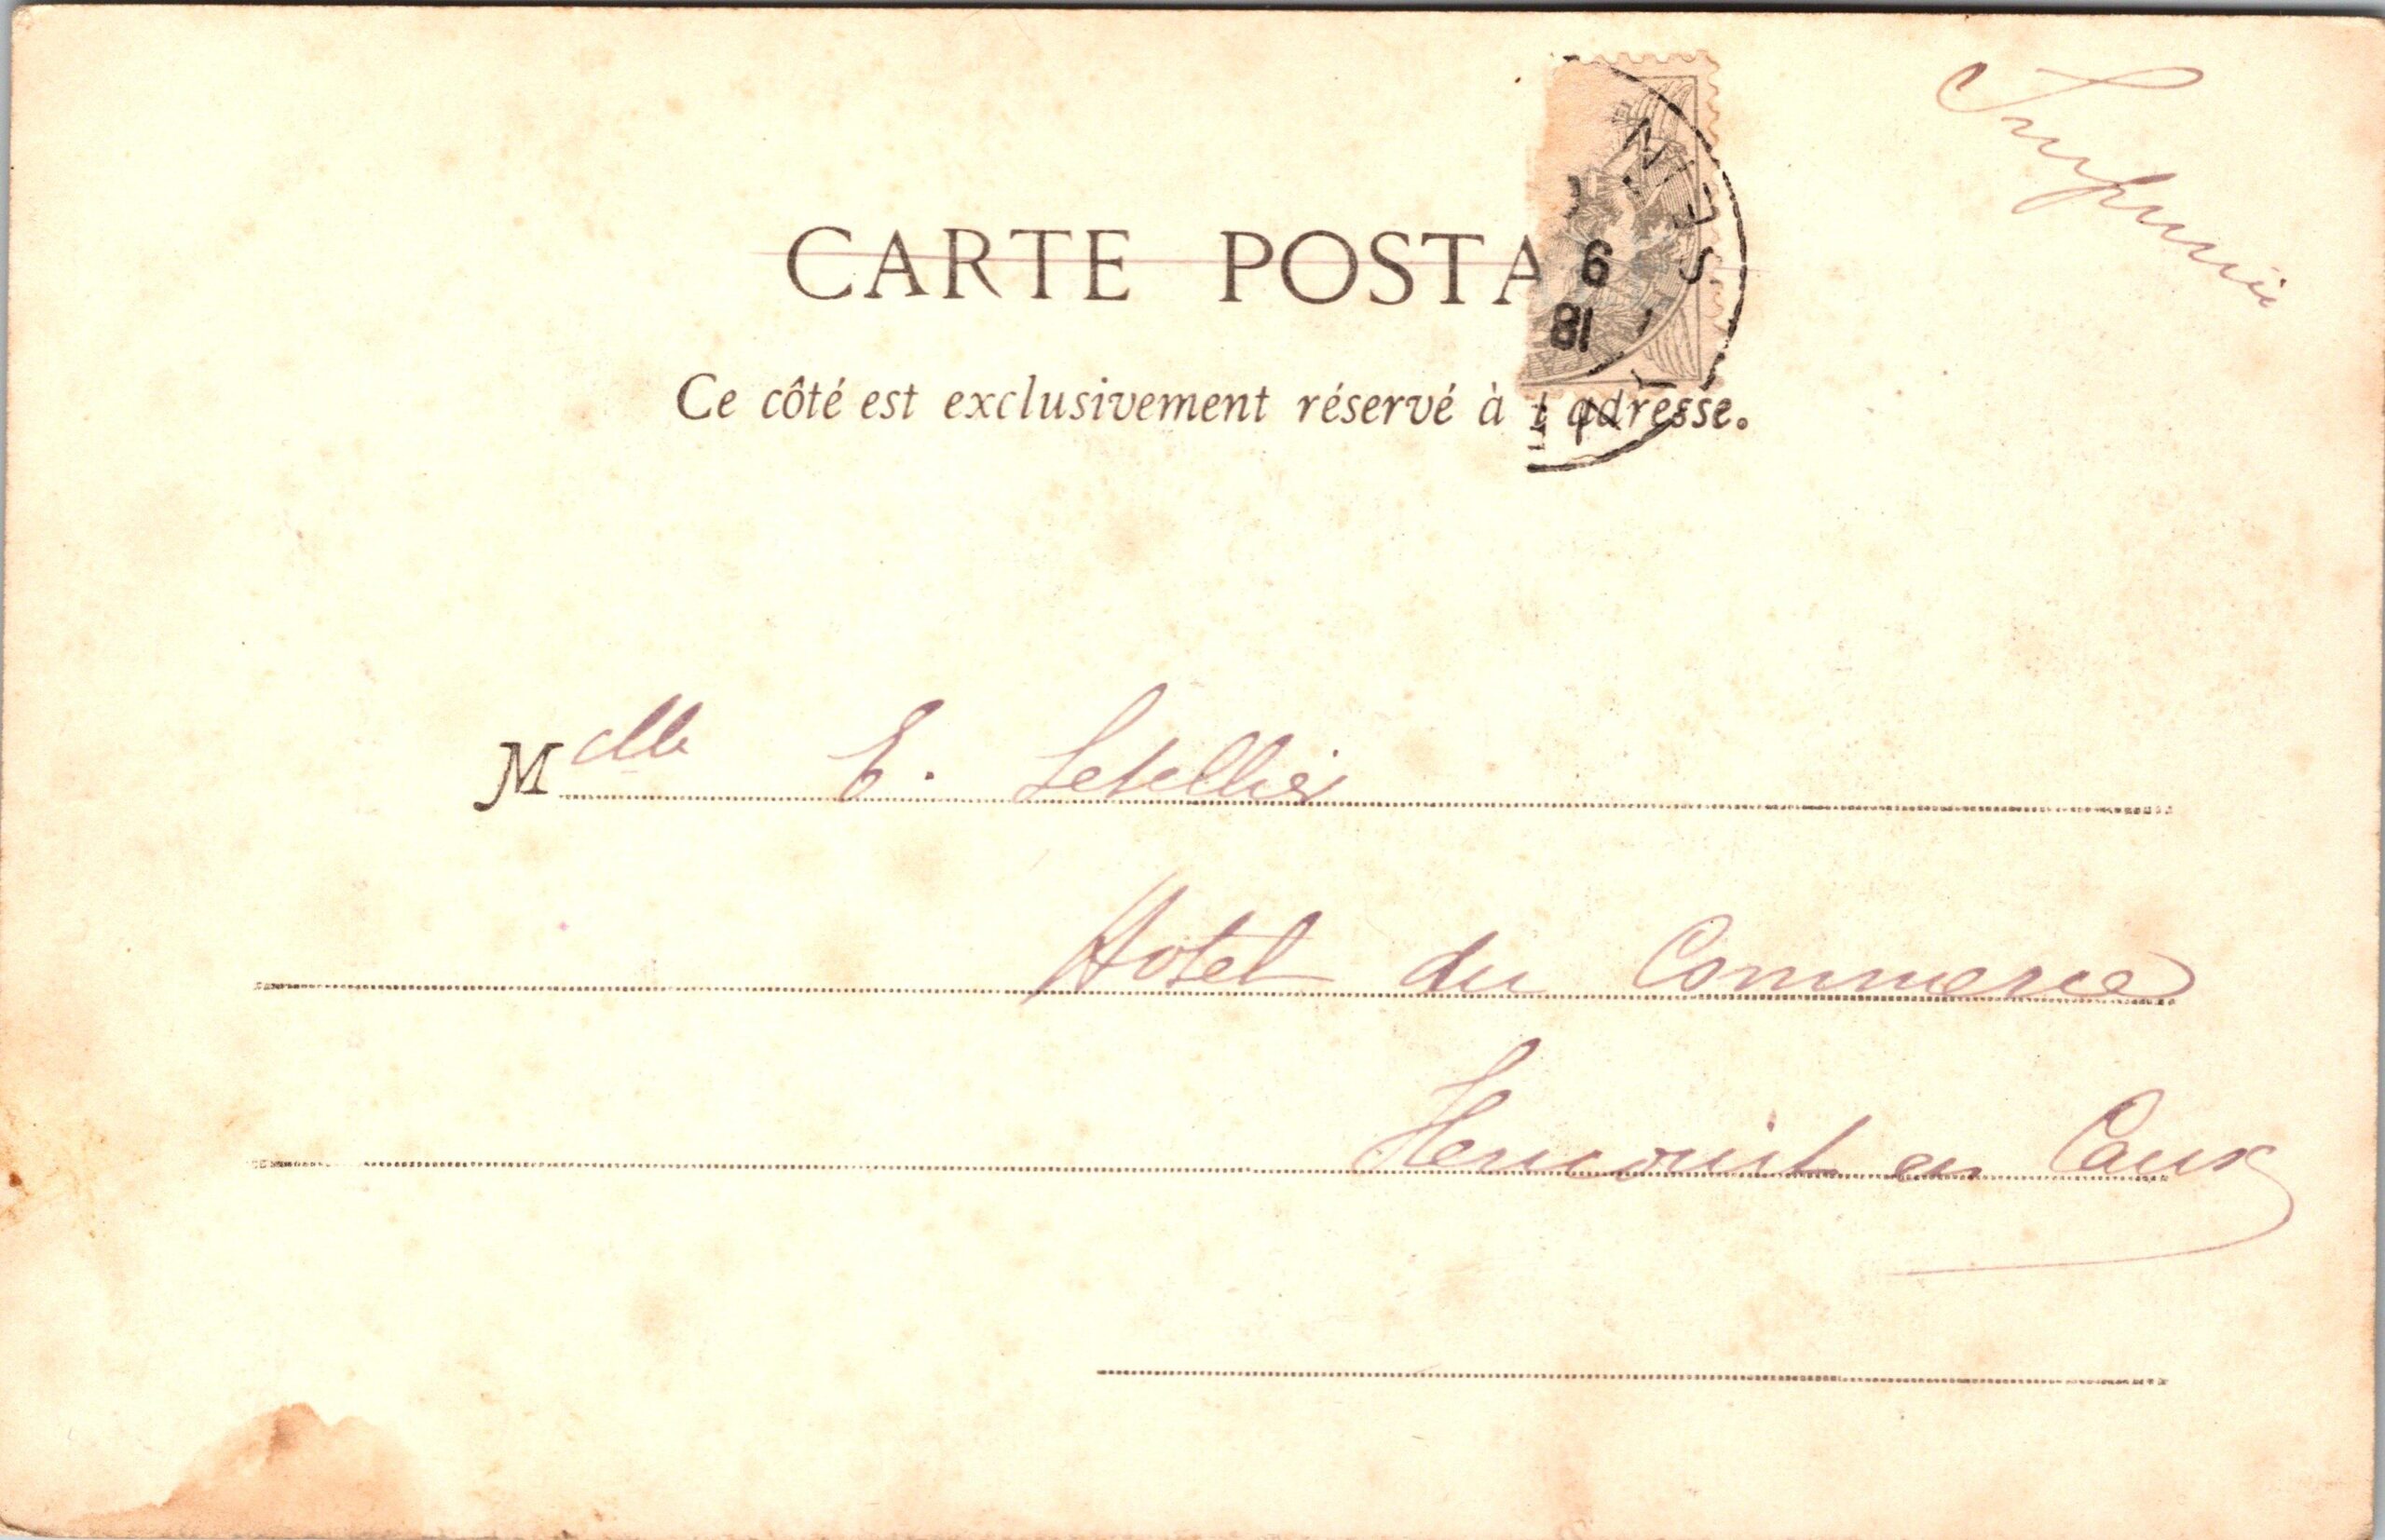 Imprimé
CARTE POSTA
Ce côté est exclusivement réservé à l'adresse.
6
18
Melle E. Letellier
Hotel du Commerce
en Caux